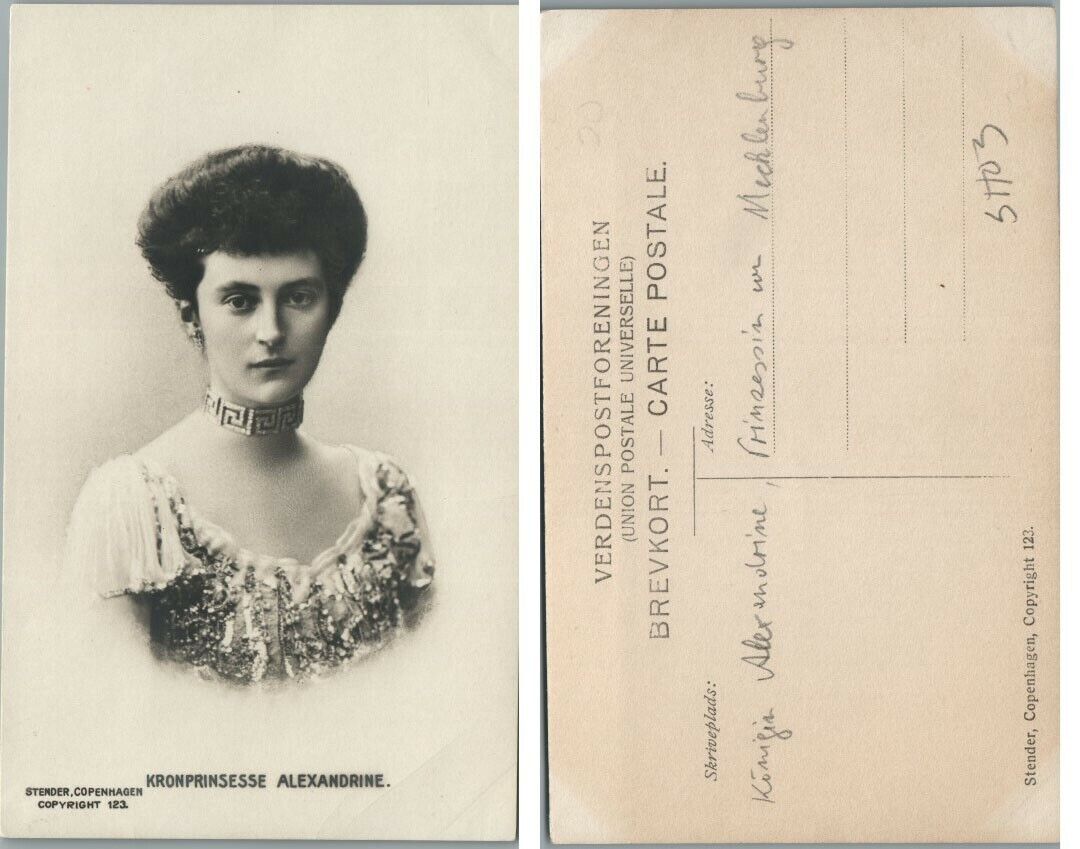 KRONPRINSESSE ALEXANDRINE.
STENDER, COPENHAGEN
COPYRIGHT 123.
VERDENSPOSTFORENINGEN
(UNION POSTALE UNIVERSELLE)
BREVKORT. — CARTE POSTALE.
Skriveplads:
Adresse:
Königin Alexandrine, Prinzessin von Mecklenburg
Stender, Copenhagen, Copyright 123.